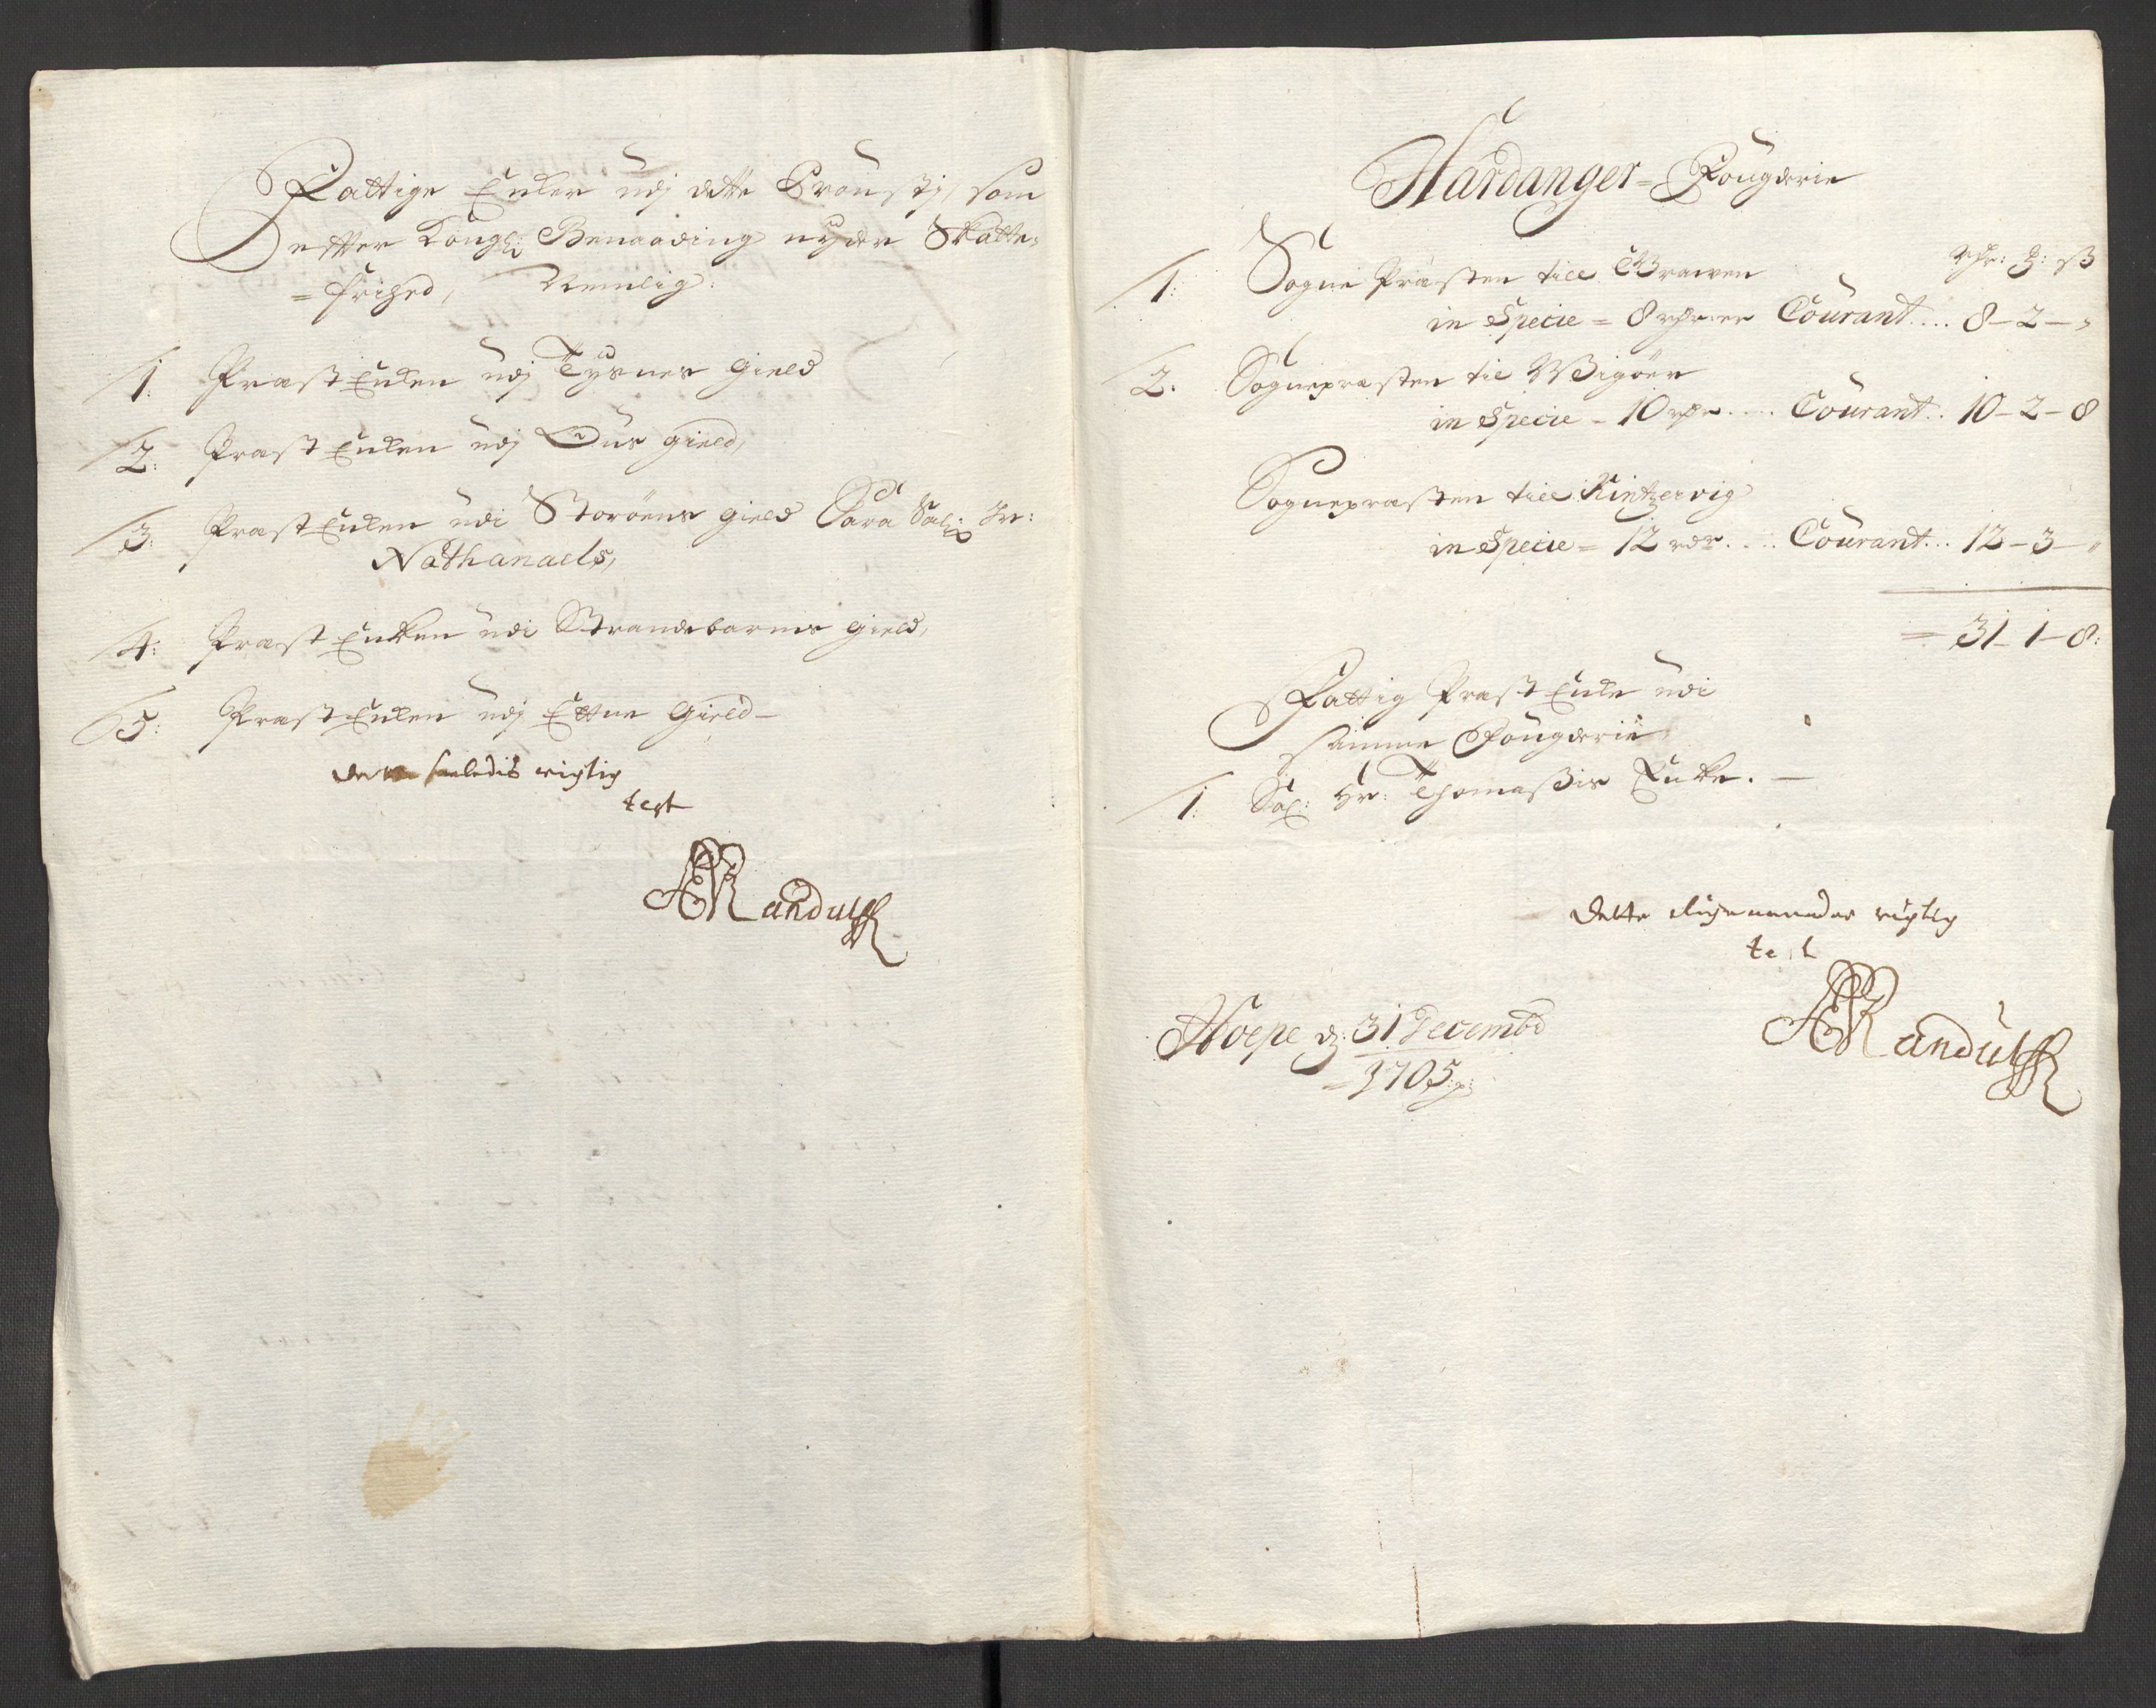 Fattige Encker udj dette Proustj, som
effter Kongl: Benaading nyder Skatte-
=frihed, Nemlig:
1: Præst Encken udj Tysnes gield
2: Præst Encken udj Ous gield,
3: Præst Encken udi Storøens gield Sara Sal: Hr:
Nathanaels,
4: Præst Encken udi Strandebarms gield,
5: Præst Encken udj Ettne gield-
saaledis rigtig
test
Randulff
Hardanger= Fougderie
Rdr: ß
1: Sogne Præsten till Grawen
in Specie = 8 rdr Courant.... 8-2-"
2. Sognepræsten til Wigøer
in Specie - 10 rdr .... Courant.. 10-2-8
Sognepræsten till Kintzervig
in Specie = 12 rdr .... Courant... 12-3-"
= 31-1-8:
Fattig Præst Encke udi
samme Fougderie
1: Sal: Hr: Thomaßis Encke. -
Dette rigtig
test
Hoepe d: 31 Decembr
1705
Randulff